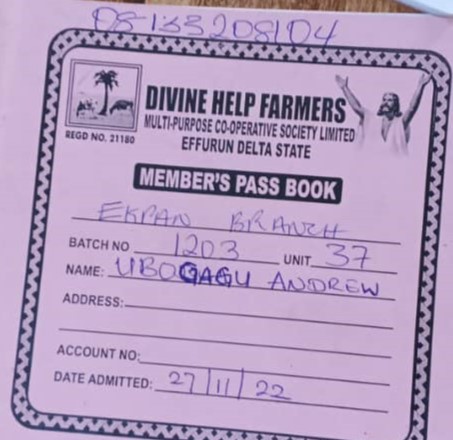 08133208104
DIVINE HELP FARMERS
MULTI-PURPOSE CO-OPERATIVE SOCIETY LIMITED
EFFURUN DELTA STATE
REGD NO. 21180
MEMBER'S PASS BOOK
EKPAN BRANCH
BATCH NO 1203 UNIT 37
NAME: UBOGAGU ANDREW
ADDRESS:
ACCOUNT NO:
DATE ADMITTED: 27/11/22